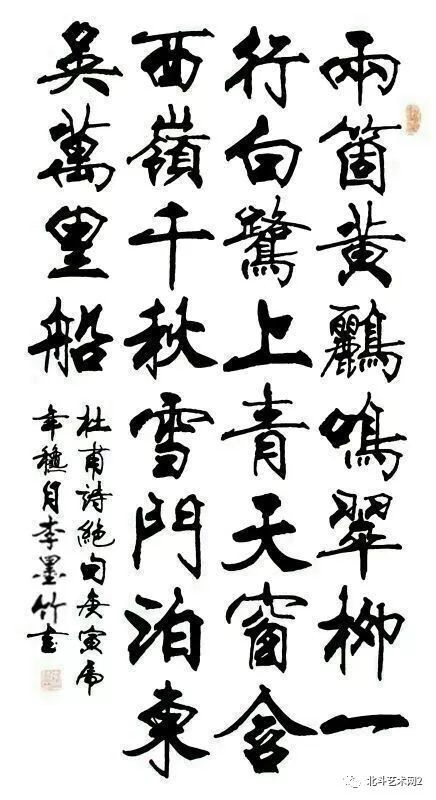 兩箇黃鸝鳴翠柳一
行白鷺上青天窗含
西嶺千秋雪門泊東
吳萬里船
杜甫詩絕句庚寅虎
年穐月李墨竹書
北斗艺术网2